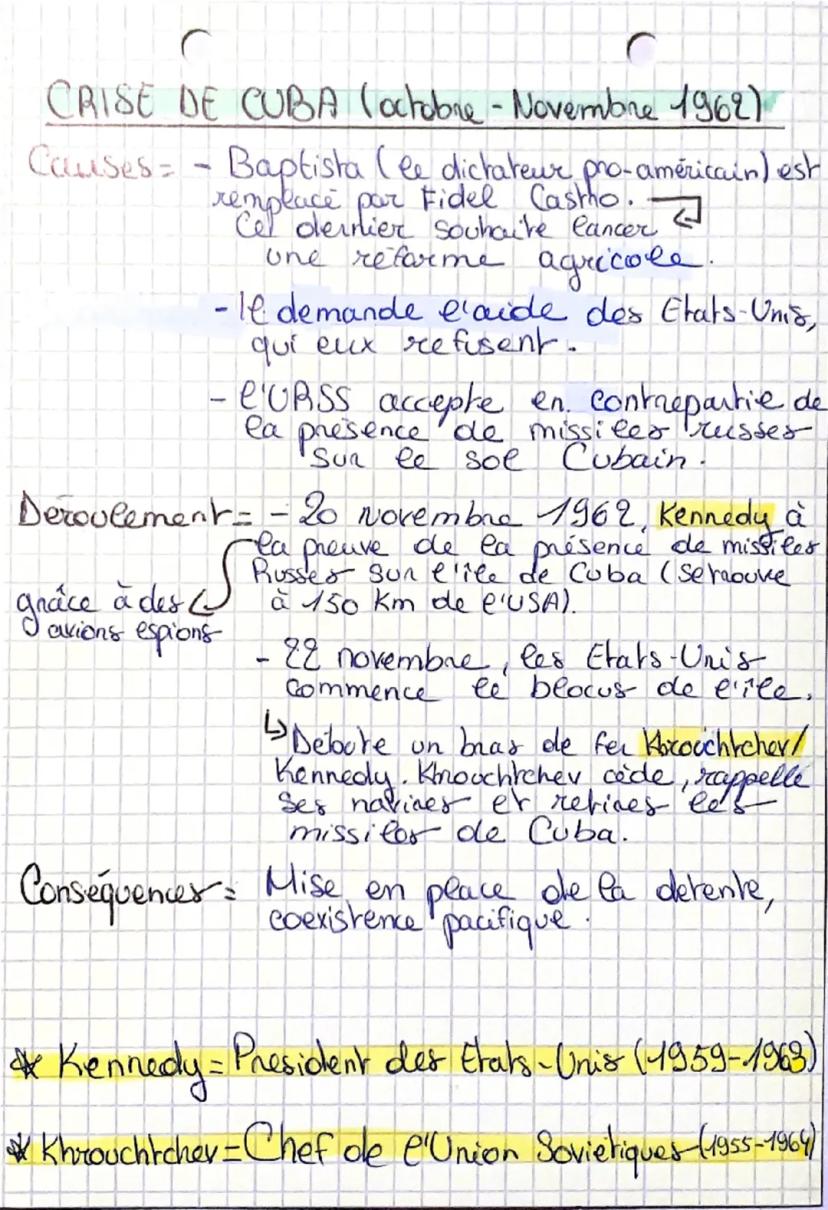 CRISE DE CUBA (octobre - Novembre 1962)
Causes = - Baptista (le dictateur pro-américain) est
remplacé par Fidel Castro.
Cet dernier souhaite lancer
une réforme agricole.
- Il demande l'aide des Etats-Unis,
qui eux refusent.
- l'URSS accepte en contrepartie de
la présence de missiles russes
sur le sol Cubain.
Deroulement = - 20 novembre 1962, Kennedy à
la preuve de la présence de missiles
Russes sur l'île de Cuba (se trouve
à 150 Km de l'USA).
grâce à des
avions espions
- 22 novembre, les Etats-Unis
commence le blocus de l'île.
↳ Debute un bras de fer Khrouchtchev/
Kennedy. Khrouchtchev cède, rappelle
ses navires et retires les
missiles de Cuba.
Conséquences = Mise en place de la detente,
coexistence pacifique.
* Kennedy = President des Etats-Unis (1959-1963)
* Khrouchtchev = Chef de l'Union Soviétiques (1955-1964)